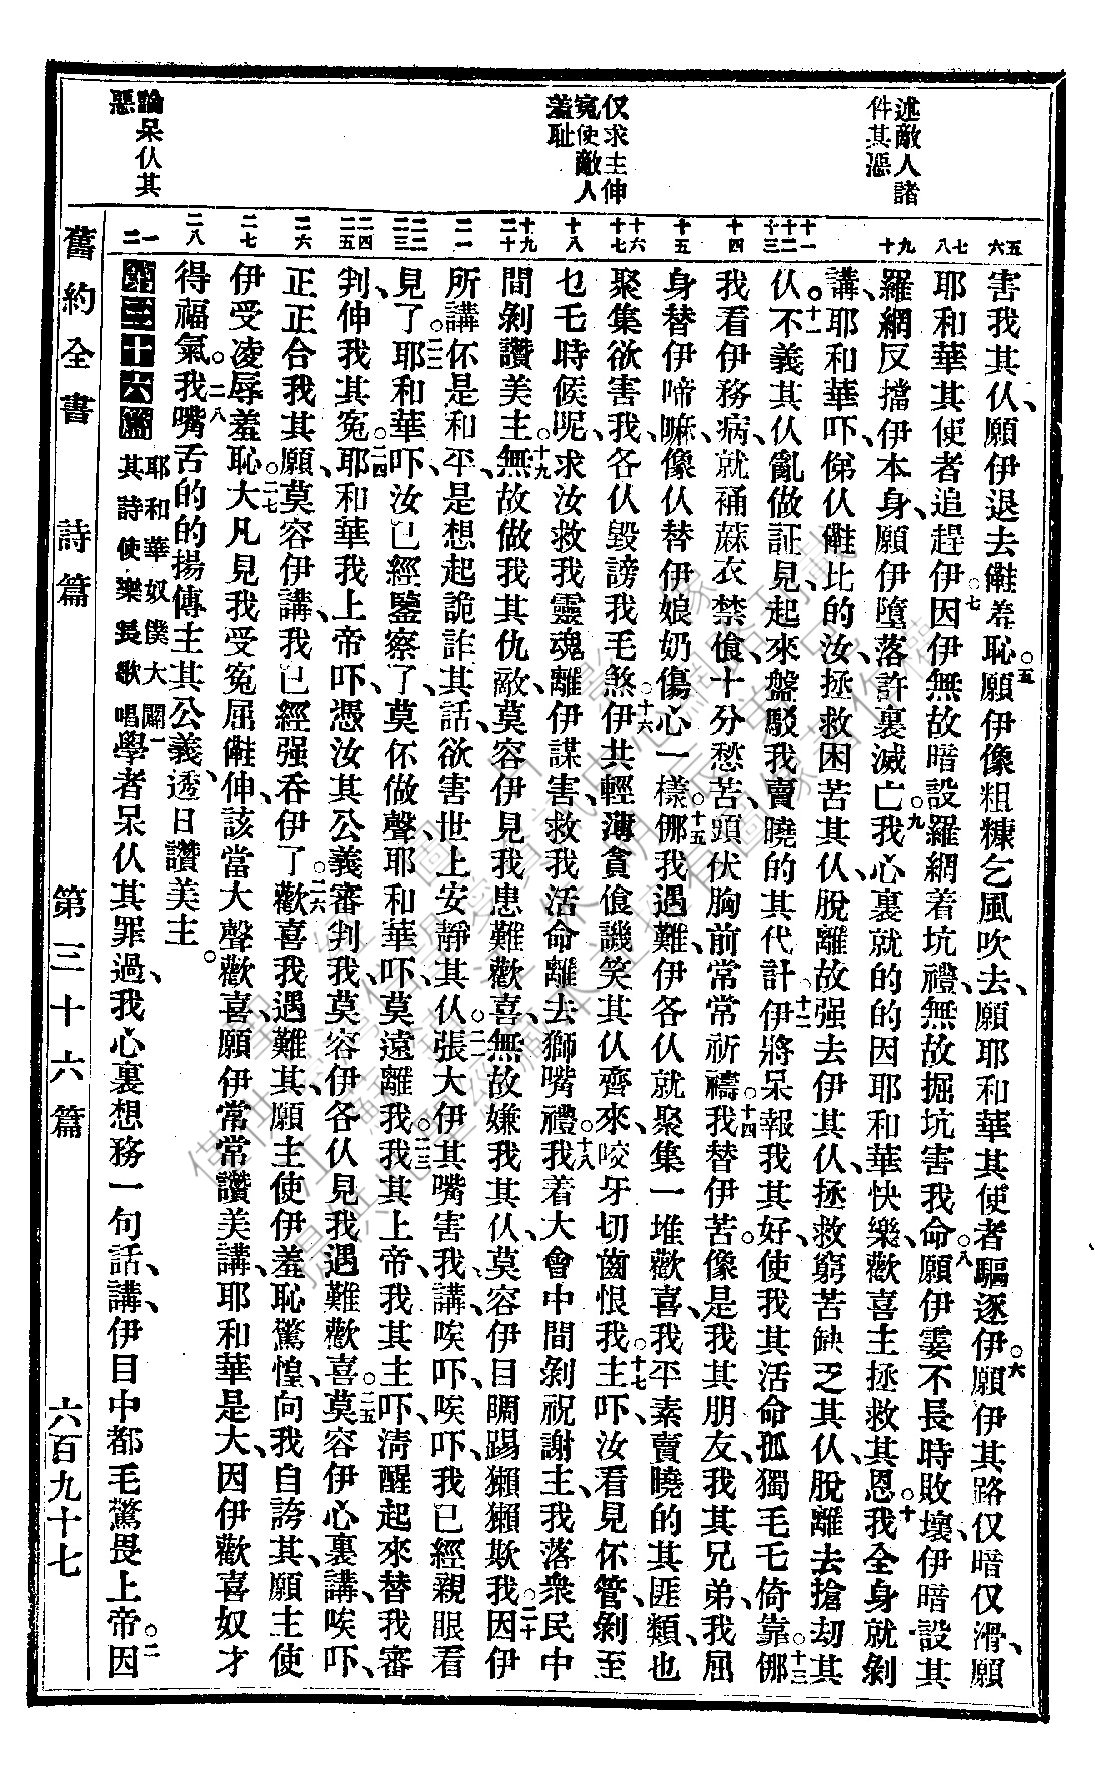 述敵人諸
件其惡
仅求主伸
冤使敵人
羞耻
論呆仈其
惡
五 六
七 八
九 十
十一 十二 十三
十四
十五
十六 十七
十八
十九 二十
二一
二二 二三
二四 二五
二六
二七
二八
一 二
害我其仈、願伊退去㒁羞恥。五願伊像粗糠乞風吹去、願耶和華其使者驅逐伊。六願伊其路仅暗仅滑、願
耶和華其使者追趕伊。七因伊無故暗設羅網着坑禮、無故掘坑害我命。八願伊霎不長時敗壞、伊暗設其
羅網反擋伊本身、願伊墮落許裏滅亡。九我心裏就的的因耶和華快樂、歡喜主拯救其恩。十我全身就剝
講、耶和華吓、俤仈㒁比的汝、拯救困苦其仈、脫離故强去伊其仈、拯救窮苦缺乏其仈脫離去搶刧其
仈。十一不義其仈亂做証見、起來盤駁我賣曉的其代計。十二伊將呆報我其好、使我其活命孤獨毛乇倚靠。十三㑚
我看伊務病、就補蔴衣禁飡、十分愁苦、頭伏胸前常常祈禱。十四我替伊苦、像是我其朋友、我其兄弟、我屈
身替伊啼嘛、像仈替伊娘奶傷心一樣。十五㑚我遇難、伊各仈就聚集一堆歡喜、我平素賣曉的其匪類、也
聚集欲害我、各仈毀謗我毛煞。十六伊共輕薄貪飡譏笑其仈齊來、咬牙切齒恨我。十七主吓、汝看見伓管剝至
乜乇時候呢、求汝救我靈魂離伊謀害、救我活命離去獅嘴禮。十八我着大會中間剝祝謝主、我落衆民中
間剝讚美主。十九無故做我其仇敵、莫容伊見我患難歡喜、無故嫌我其仈、莫容伊目瞷踢獺獺欺我。二十因伊
所講伓是和平、是想起詭詐其話、欲害世上安靜其仈。二一張大伊其嘴害我、講、唉吓、唉吓、我已經親眼看
見了。二二耶和華吓、汝已經鑒察了、莫伓做聲、耶和華吓、莫遠離我。二三我其上帝我其主吓、淸醒起來替我審
判、伸我其冤。二四耶和華我上帝吓、憑汝其公義審判我、莫容伊各仈見我遇難歡喜。二五莫容伊心裏講、唉吓、
正正合我其願、莫容伊講、我已經强吞伊了。二六歡喜我遇難其、願主使伊羞恥驚惶、向我自誇其、願主使
伊受凌辱羞恥。二七大凡見我受冤屈㒁伸、該當大聲歡喜、願伊常常讚美講、耶和華是大、因伊歡喜奴才
得福氣。二八我嘴舌的的揚傳主其公義、透日讚美主。
第三十六篇 耶和華奴僕大闢一其詩使樂長歌唱 學者呆仈其罪過、我心裏想務一句話、講、伊目中都毛驚畏上帝。二因
舊約全書 詩篇 第三十六篇 六百九十七